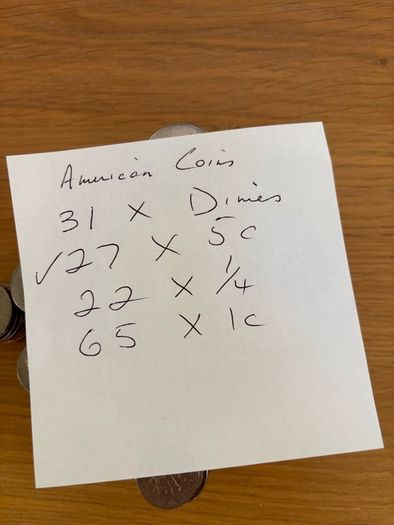 American Coins
31 x Dimes
✓27 x 5c
22 x 1/4
65 x 1c